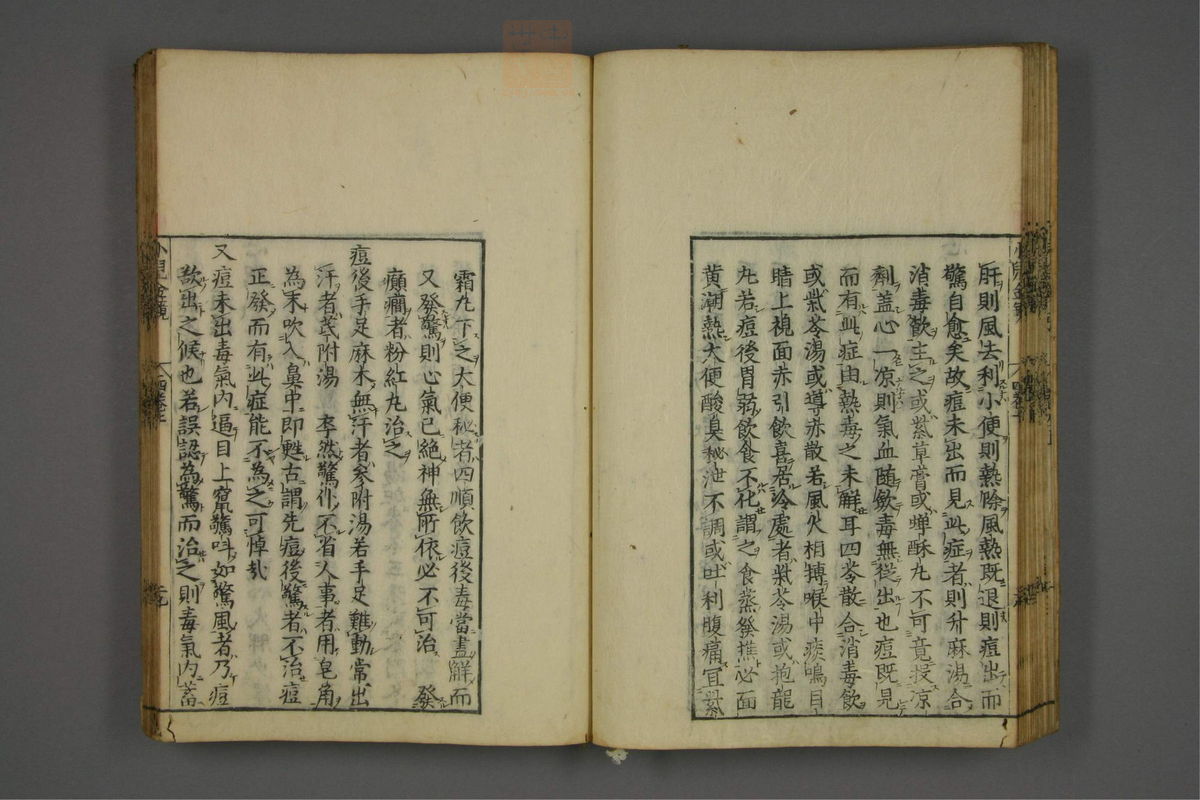 肝則風去利小便則熱除風熱既退則痘出而
驚自愈矣故痘未出而見此症者則升麻湯合
消毒歓主之或紫草膏或蟬酥丸不可竟投凉
劑盖心一凉則氣血随斂毒無従出也痘既見
而有此症由熱毒之未解耳四苓散合消毒飲
或紫苓湯或導赤散若風火相搏喉中痰鳴目
睛上視面赤引飲喜居冷處者紫苓湯或抱龍
丸若痘後胃弱飲食不化謂之食蒸發搐必面
黄潮熱大便酸臭秘泄不調或吐利腹痛宜紫
霜丸下之大便秘者四順飲痘後毒當盡解而
又發驚則心氣已絶神無所依必不可治 發
癲癇者粉紅丸治之
痘後手足麻木無汗者參附湯若手足難動常出
汗者芪附湯 卒然驚作不省人事者用皂角
為末吹入鼻中即甦古謂先痘後驚者不治痘
正發而有此症能不為之可悼㦲
又痘未出毒氣内逼目上竄驚呌如驚風者乃痘
欲出之候也若誤認為驚而治之則毒氣内蓄